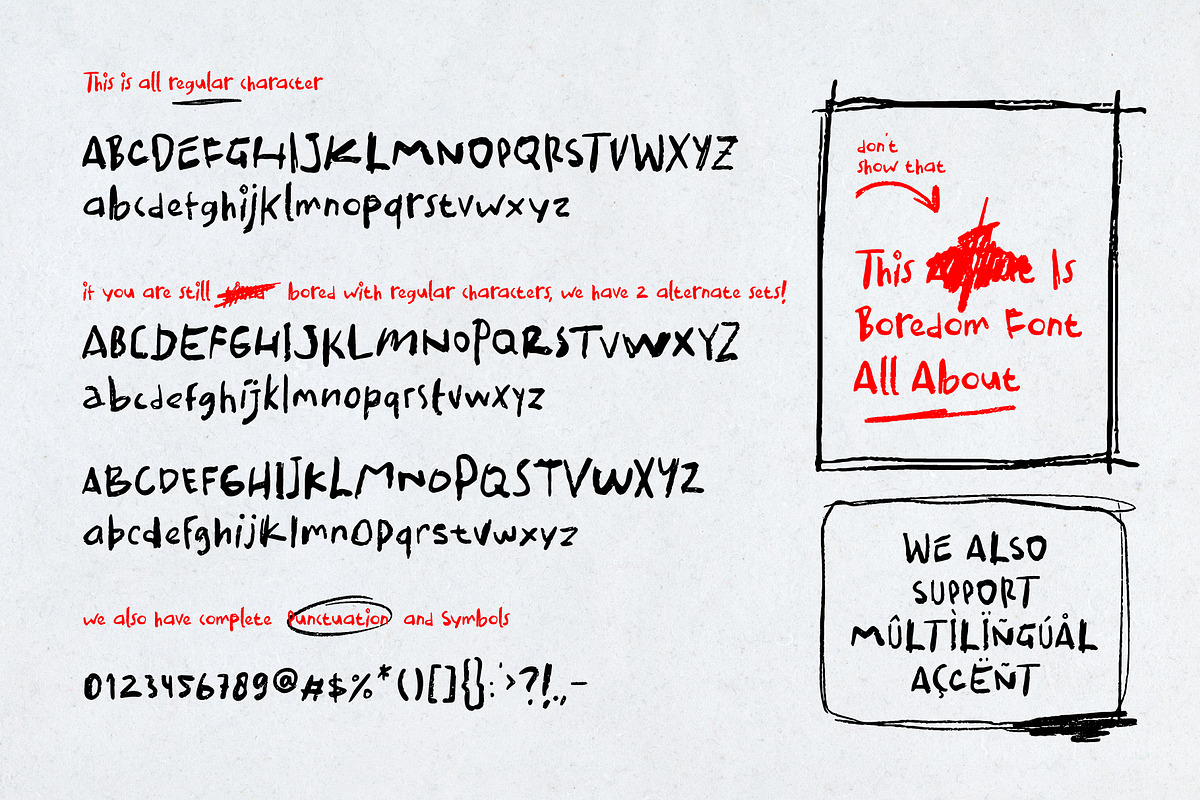 This is all regular character
ABCDEFGHIJKLMNOPQRSTVWXYZ
abcdefghijklmnopqrstvwxyz
if you are still bored with regular characters, we have 2 alternate sets!
ABCDEFGHIJKLMNOPQRSTVWXYZ
abcdefghijklmnopqrstvwxyz
ABCDEFGHIJKLMNOPQSTVWXYZ
abcdefghijklmnopqrstvwxyz
we also have complete Punctuation and Symbols
0123456789@#$%*()[]{}:›?!.,-
don't
show that
This Is
Boredom Font
All About
WE ALSO
SUPPORT
MÛLTÌLÏÑGÚÅL
AÇCËÑT